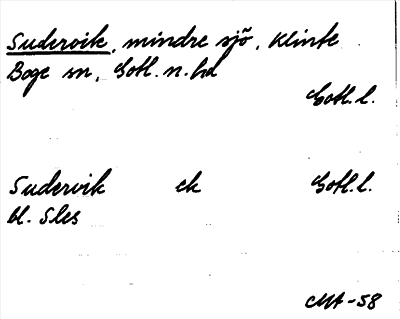 Sudervik, mindre sjö, Klinte
Boge sn, Gotl. n. hd
Gotl. l.
Sudervik ek Gotl. l.
bl. Sles
CMA-58